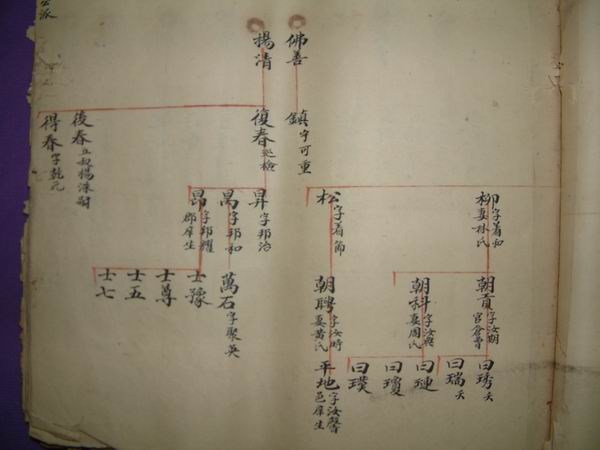 佛善
揚清
鎮字可重
復春巡檢
後春立叔揚洙嗣
得春字乾元
柳字着和妻林氏
松字着節
昇字邦治
昺字邦和
昂字邦耀郡庠生
朝貢字汝期官倉曹
朝科字汝興妻周氏
朝聘字汝時妻黃氏
萬石字聚英
士豫
士尊
士五
士七
曰琇夭
曰瑞夭
曰璉
曰瓊
曰璞
平地字汝馨邑庠生
公派